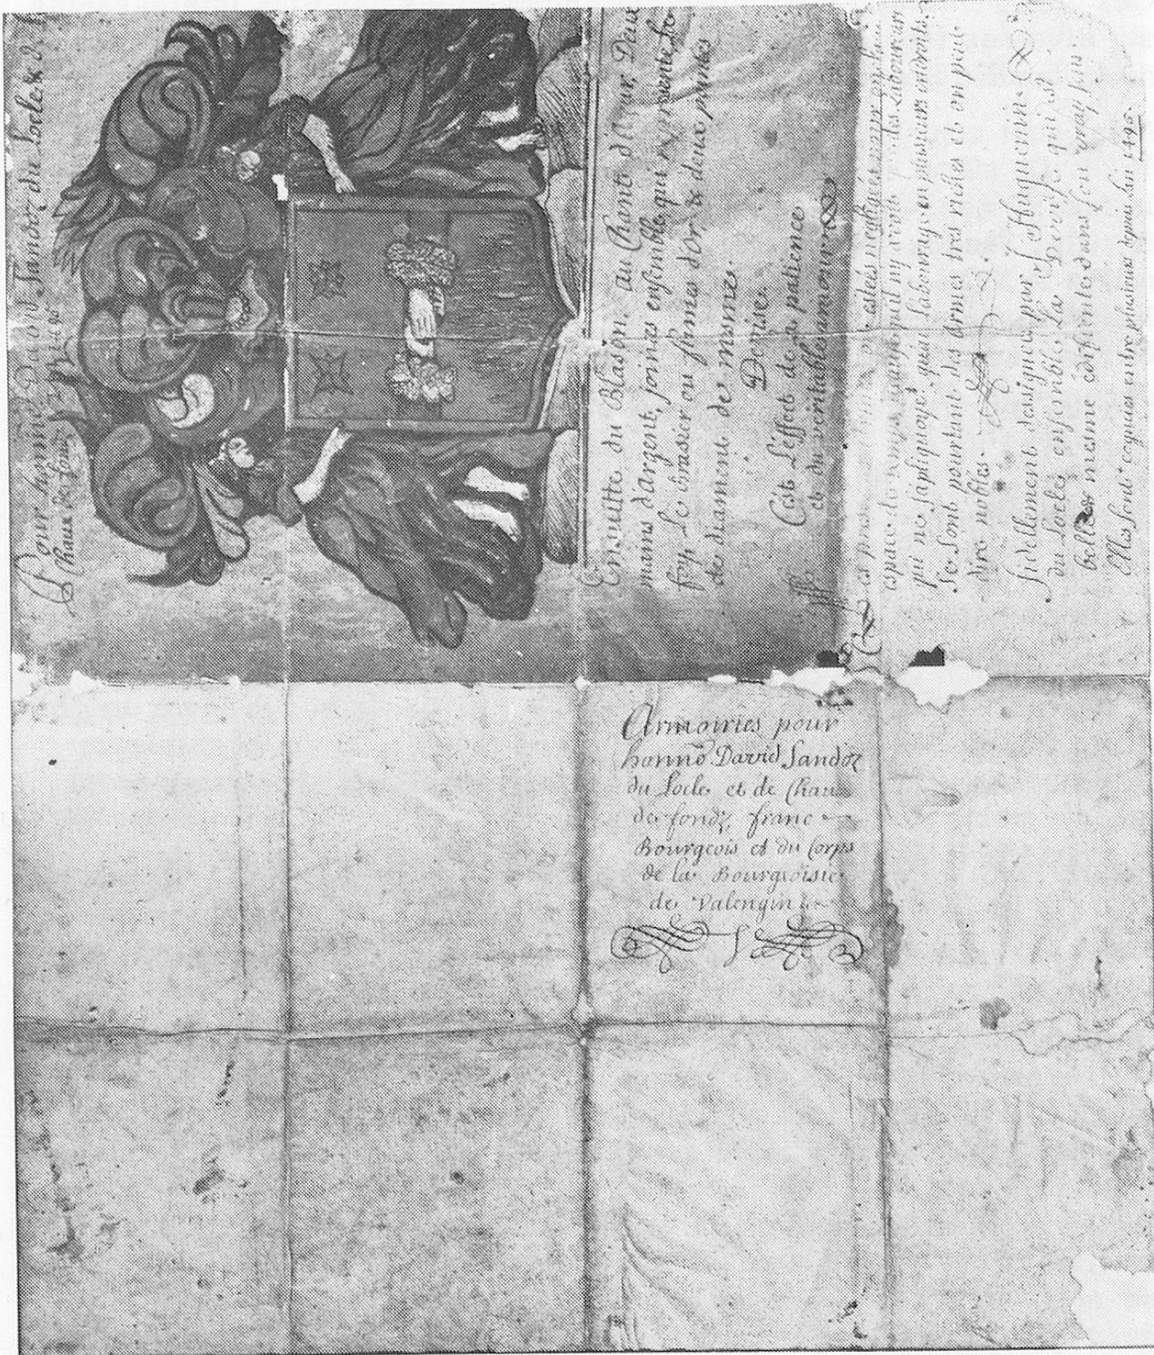 Pour honn̄e David Sandoz du Locle & de la
Chaux de fondz
Ensuitte du Blason, au Chant d'azur, Deux
mains d'argent, joinctes ensemble, qui represente la
foy, Le brasier ou fermes d'Or, & deux pointes
de diament de mesmes
Devise.
C'est L'effect de la patience
et du veritable amour
espace de temps
qui ne s'apliquoyt qu'au labourage en plusieurs endroits,
se sont pourtant des armes tres riches et on peut
dire nobles.
fidellement designees par J Huguenin
du Locle, ensemble La Devise qui est
belle mesme edifiente dans son vray sens
Elles sont cognues entre plusieurs depuis l'an 1495.
Armoiries pour
honn̄e David Sandoz
du Locle et de Chaux
de fondz, franc
Bourgeois et du Corps
de la Bourgeoisie
de Valengin